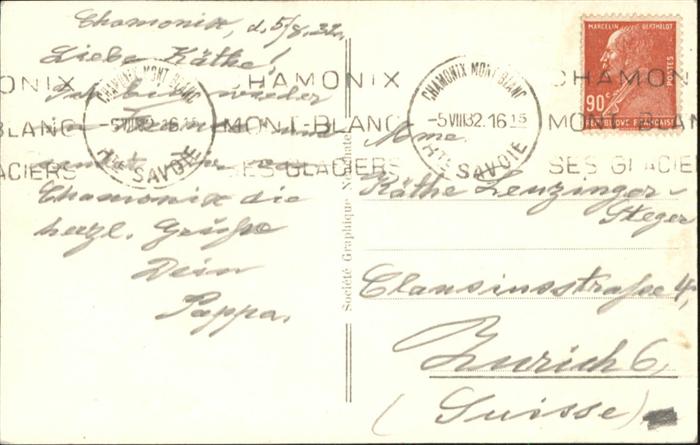 Chamonix, d. 5/8.32.
Liebe Käthe!
Ich bin wieder
Chamonix die
herzl. Grüße
Dein
Pappa.
Société Graphique Neuchâtel
CHAMONIX MONT-BLANC
-5 VIII 32. 16 15
HTE SAVOIE
CHAMONIX
MONT-BLANC
SES GLACIERS
CHAMONIX MONT-BLANC
-5 VIII 32. 16 15
HTE SAVOIE
CHAMON
MONT-BLA
SES GLACI
MARCELIN BERTHELOT
POSTES
90c
REPUBLIQUE FRANÇAISE
Mme
Käthe Lenzinger-
Steger
Clausiusstraße 4,
Zurich 6
(Suisse)